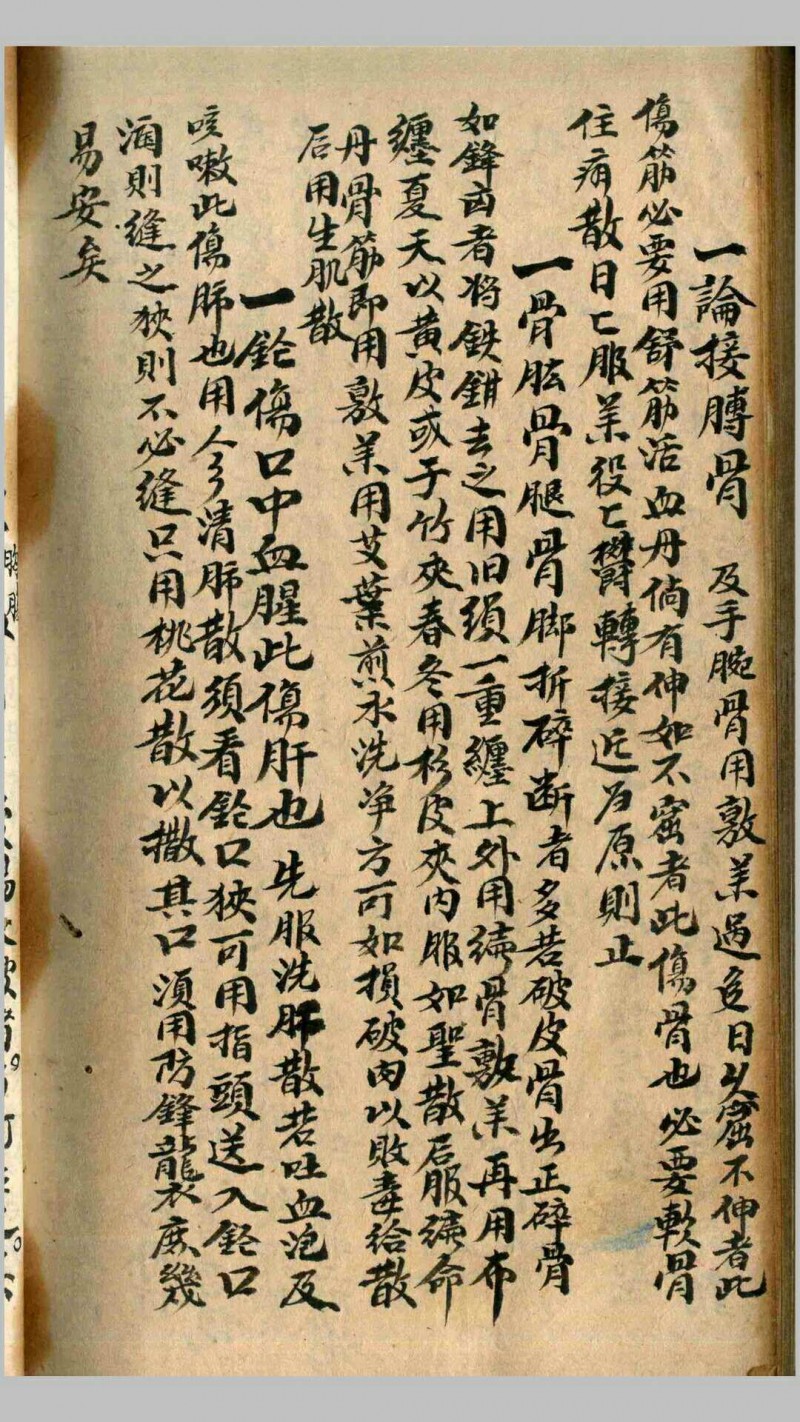 一論接膊骨 及手腕骨用敷羔過迄日以窟不伸者此
傷筋必要用舒筋活血丹倘有伸如不窟者此傷骨也必要軟骨
住痛散日匕服羔役匕欝轉接近為原則止
一骨肱骨腿骨脚折碎断者多若破皮骨出正碎骨
如鋒齒者将鉄鉗去之用旧須一重纏上外用續骨敷羔再用布
纏夏天以黄皮或子竹夾春冬用杉皮夾内服如聖散后服續命
丹骨筋即用敷羔用艾葉煎水洗净方可如損破肉以敗毒给散
后用生肌散
一鈴傷口中血腥此傷肝也 先服洗肺散若吐血泡及
咳嗽此傷肺也用人参清肺散須看鈴口狹可用指頭送入鈴口
涸則縫之狹則不必縫只用桃花散以撒其口湏用防鋒龍衣庶幾
易安矣